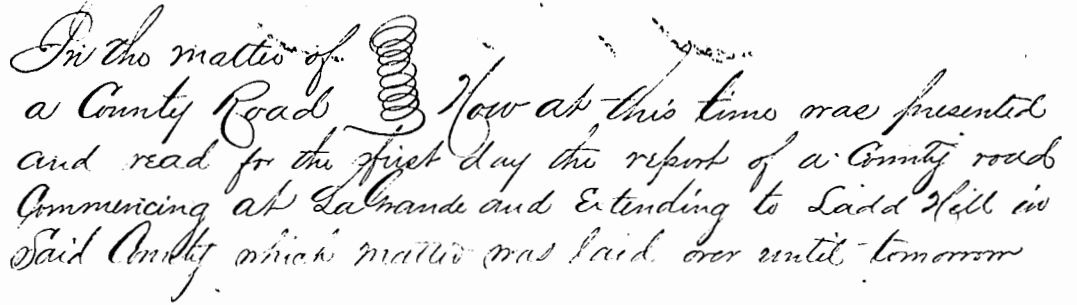 In the matter of
a County Road Now at this time was presented
and read for the first day the report of a County road
Commencing at LaGrande and Extending to Ladd Hill in
Said County which matter was laid over until tomorrow